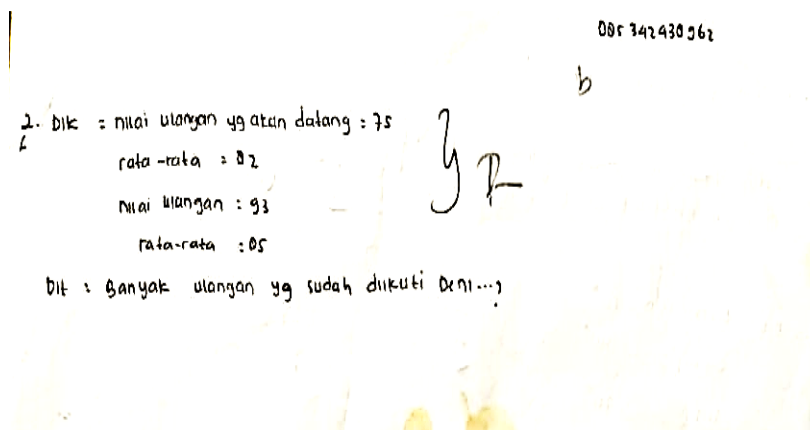 085 342430962
b
2. Dik : nilai ulangan yg akan datang : 75
rata-rata : 82
nilai ulangan : 93
rata-rata : 85
Dit : Banyak ulangan yg sudah diikuti Deni...?